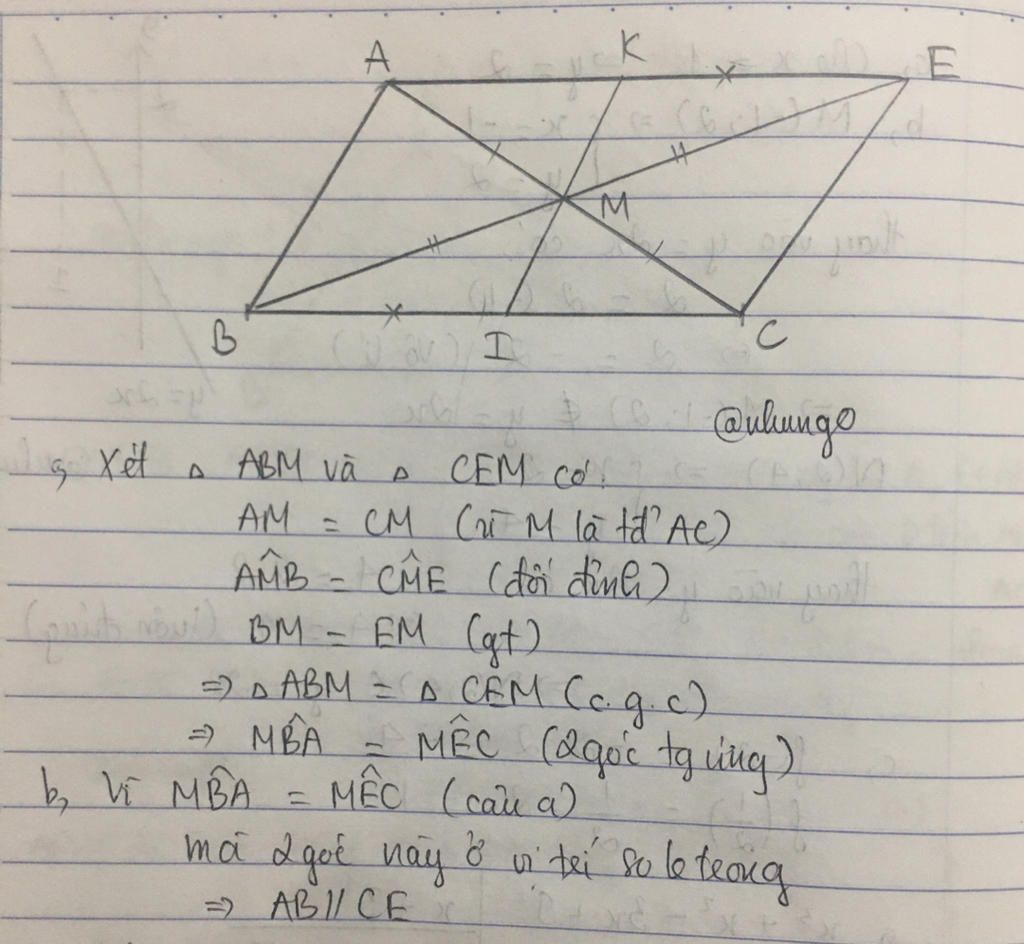 A K E
M
B I C
@nhung0
a, Xét △ ABM và △ CEM có:
AM = CM (vì M là tđ' AC)
AM̂B = CM̂E (đối đỉnh)
BM = EM (gt)
=> △ ABM = △ CEM (c.g.c)
=> MB̂A = MÊC (2 góc tg ứng)
b, Vì MB̂A = MÊC (câu a)
mà 2 góc này ở vị trí so le trong
=> AB // CE